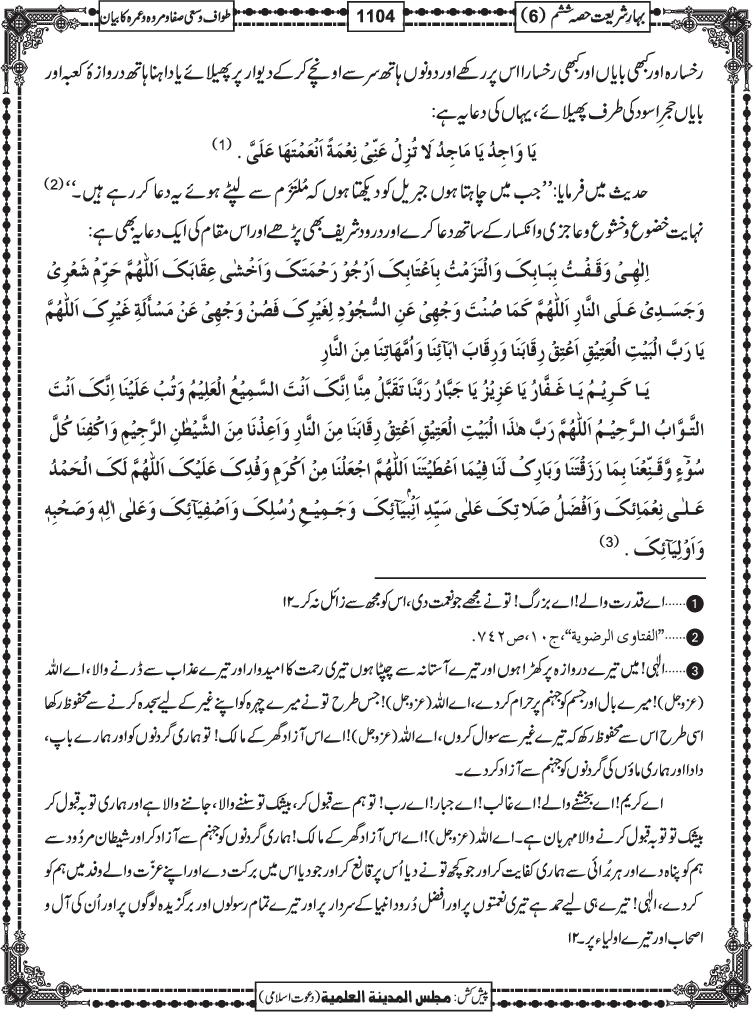 بہارِ شریعت حصہ ششم (6)
1104
طواف و سعی صفا و مروہ و عمرہ کا بیان
رخسارہ اور کبھی بایاں اور کبھی رخسارا اس پر رکھے اور دونوں ہاتھ سر سے اونچے کر کے دیوار پر پھیلائے یا داہنا ہاتھ دروازۂ کعبہ اور
بایاں حجرِ اسود کی طرف پھیلائے، یہاں کی دعا یہ ہے:
یَا وَاجِدُ یَا مَاجِدُ لَا تُزِلْ عَنِّیْ نِعْمَۃً اَنْعَمْتَھَا عَلَیَّ . (1)
حدیث میں فرمایا: ’’جب میں چاہتا ہوں جبریل کو دیکھتا ہوں کہ مُلتزَم سے لپٹے ہوئے یہ دعا کر رہے ہیں۔‘‘ (2)
نہایت خضوع و خشوع و عاجزی و انکسار کے ساتھ دعا کرے اور درود شریف بھی پڑھے اور اس مقام کی ایک دعا یہ بھی ہے:
اِلٰھِیْ وَقَفْتُ بِبَابِکَ وَالْتَزَمْتُ بِاَعْتَابِکَ اَرْجُوْ رَحْمَتَکَ وَاَخْشٰی عِقَابَکَ اَللّٰھُمَّ حَرِّمْ شَعْرِیْ
وَجَسَدِیْ عَلَی النَّارِ اَللّٰھُمَّ کَمَا صُنْتَ وَجْھِیْ عَنِ السُّجُوْدِ لِغَیْرِکَ فَصُنْ وَجْھِیْ عَنْ مَسْأَلَۃِ غَیْرِکَ اَللّٰھُمَّ
یَا رَبَّ الْبَیْتِ الْعَتِیْقِ اَعْتِقْ رِقَابَنَا وَرِقَابَ اٰبَآئِنَا وَاُمَّھَاتِنَا مِنَ النَّارِ
یَا کَرِیْمُ یَا غَفَّارُ یَا عَزِیْزُ یَا جَبَّارُ رَبَّنَا تَقَبَّلْ مِنَّا اِنَّکَ اَنْتَ السَّمِیْعُ الْعَلِیْمُ وَتُبْ عَلَیْنَا اِنَّکَ اَنْتَ
التَّوَّابُ الرَّحِیْمُ اَللّٰھُمَّ رَبَّ ھٰذَا الْبَیْتِ الْعَتِیْقِ اَعْتِقْ رِقَابَنَا مِنَ النَّارِ وَاَعِذْنَا مِنَ الشَّیْطٰنِ الرَّجِیْمِ وَاکْفِنَا کُلَّ
سُوْٓءٍ وَّقَنِّعْنَا بِمَا رَزَقْتَنَا وَبَارِکْ لَنَا فِیْمَا اَعْطَیْتَنَا اَللّٰھُمَّ اجْعَلْنَا مِنْ اَکْرَمِ وَفْدِکَ عَلَیْکَ اَللّٰھُمَّ لَکَ الْحَمْدُ
عَلٰی نِعْمَائِکَ وَاَفْضَلُ صَلَاتِکَ عَلٰی سَیِّدِ اَنْبِیَآئِکَ وَجَمِیْعِ رُسُلِکَ وَاَصْفِیَآئِکَ وَعَلٰی اٰلِہٖ وَصَحْبِہٖ
وَاَوْلِیَآئِکَ . (3)
1 ......اے قدرت والے! اے بزرگ! تو نے مجھے جو نعمت دی، اس کو مجھ سے زائل نہ کر۔ ۱۲
2 ......’’الفتاوی الرضویۃ‘‘، ج۱۰، ص۷۴۲.
3 ......الٰہی! میں تیرے دروازہ پر کھڑا ہوں اور تیرے آستانہ سے چپٹا ہوں تیری رحمت کا امیدوار اور تیرے عذاب سے ڈرنے والا، اے اللہ
(عزوجل)! میرے بال اور جسم کو جہنم پر حرام کر دے، اے اللہ (عزوجل)! جس طرح تو نے میرے چہرہ کو اپنے غیر کے لیے سجدہ کرنے سے محفوظ رکھا
اسی طرح اس سے محفوظ رکھ کہ تیرے غیر سے سوال کروں، اے اللہ (عزوجل)! اے اس آزاد گھر کے مالک! تو ہماری گردنوں کو اور ہمارے باپ،
دادا اور ہماری ماؤں کی گردنوں کو جہنم سے آزاد کر دے۔
اے کریم! اے بخشنے والے! اے غالب! اے جبار! اے رب! تو ہم سے قبول کر، بیشک تو سننے والا، جاننے والا ہے اور ہماری توبہ قبول کر
بیشک تو توبہ قبول کرنے والا مہربان ہے۔ اے اللہ (عزوجل)! اے اس آزاد گھر کے مالک! ہماری گردنوں کو جہنم سے آزاد کر اور شیطان مردُود سے
ہم کو پناہ دے اور ہر بُرائی سے ہماری کفایت کر اور جو کچھ تو نے دیا اُس پر قانع کر اور جو دیا اس میں برکت دے اور اپنے عزّت والے وفد میں ہم کو
کر دے، الٰہی! تیرے ہی لیے حمد ہے تیری نعمتوں پر اور افضل دُرود انبیا کے سردار پر اور تیرے تمام رسولوں اور برگزیدہ لوگوں پر اور اُن کی آل و
اصحاب اور تیرے اولیاء پر۔ ۱۲
پیش کش: مجلس المدینۃ العلمیۃ (دعوت اسلامی)